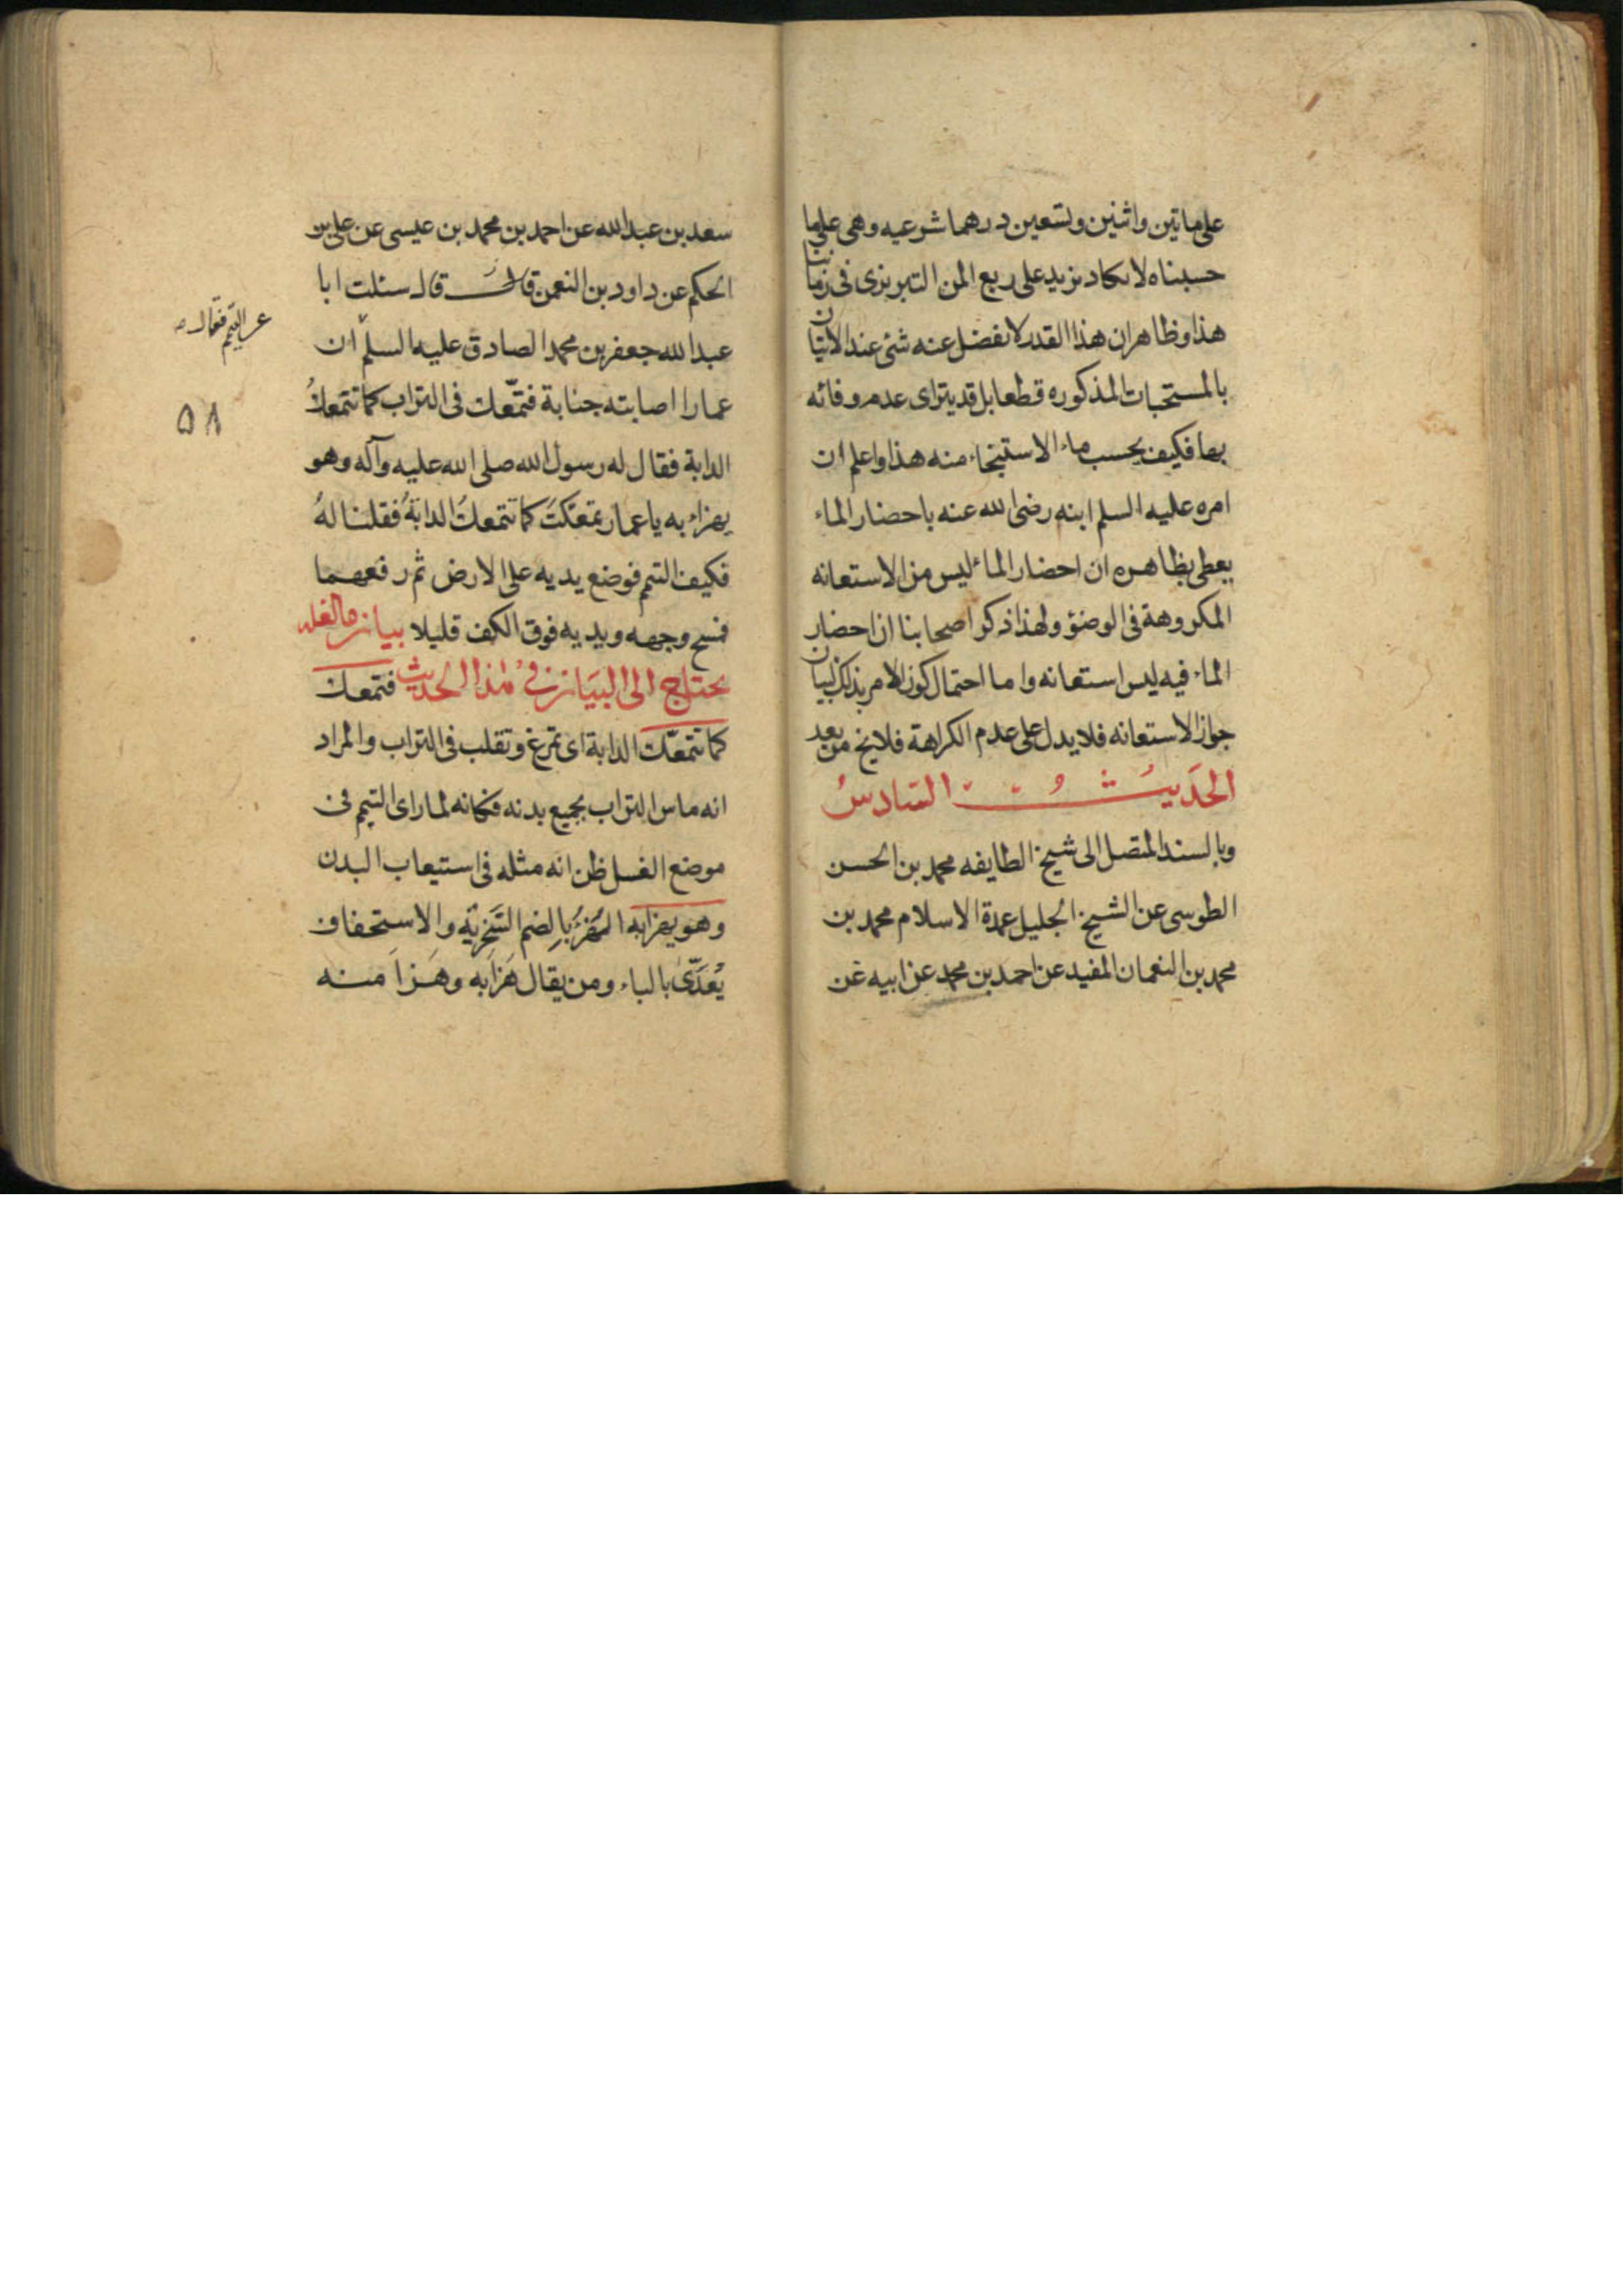 على ماتين واثنين وتسعين درهما شرعيه وهى على ما
حسبناه لا يكاد يزيد على ربع المن التبريزى فى زماننا
هذا وظاهر ان هذا القدر لا يفضل عنه شئ عند الاتيان
بالمستحبات المذكوره قطعا بل قد يتراى عدم وفائه
بها فكيف يحسب ماء الاستنجاء منه هذا واعلم ان
امره عليه السلم ابنه رضى الله عنه باحضار الماء
يعطى بظاهره ان احضار الماء ليس من الاستعانه
المكروهة فى الوضوء ولهذا ذكر اصحابنا ان احضار
الماء فيه ليس استعانه واما احتمال كون الامر بذلك لبيان
جواز الاستعانه فلا يدل على عدم الكراهة فلا يخ من بعد
الحديث السادس
وبالسند المتصل الى شيخ الطايفه محمد بن الحسن
الطوسى عن الشيخ الجليل عمدة الاسلام محمد بن
محمد بن النعمان المفيد عن احمد بن محمد عن ابيه عن
سعد بن عبد الله عن احمد بن محمد بن عيسى عن على بن
الحكم عن داود بن النعمن قال قال سئلت ابا
عبد الله جعفر بن محمد الصادق عليه السلم ان
عن التيمم فقال
عمارا اصابته جنابة فتمعّك فى التراب كما تتمعك
۵۸
الدابة فقال له رسول الله صلى الله عليه وآله وهو
يهزاء به يا عمار تمعكتَ كما تتمعكُ الدابةُ فقلنا لهُ
فكيف التيمم فوضع يديه على الارض ثم رفعهما
فمسح وجهه ويديه فوق الكف قليلا بيان ما لعله
يحتاج الى البيان فى هذا الحديث فتمعك
كما تتمعّك الدابة اى تمرغ وتقلب فى التراب والمراد
انه ماس التراب بجميع بدنه فكانه لما راى التيمم فى
موضع الغسل ظن انه مثله فى استيعاب البدن
وهو يهزابه الهُزءُ بالضم السّخريّه والاستخفاف
يُعَدّى بالباء ومن يقال هَزَابه وهَزَا منه